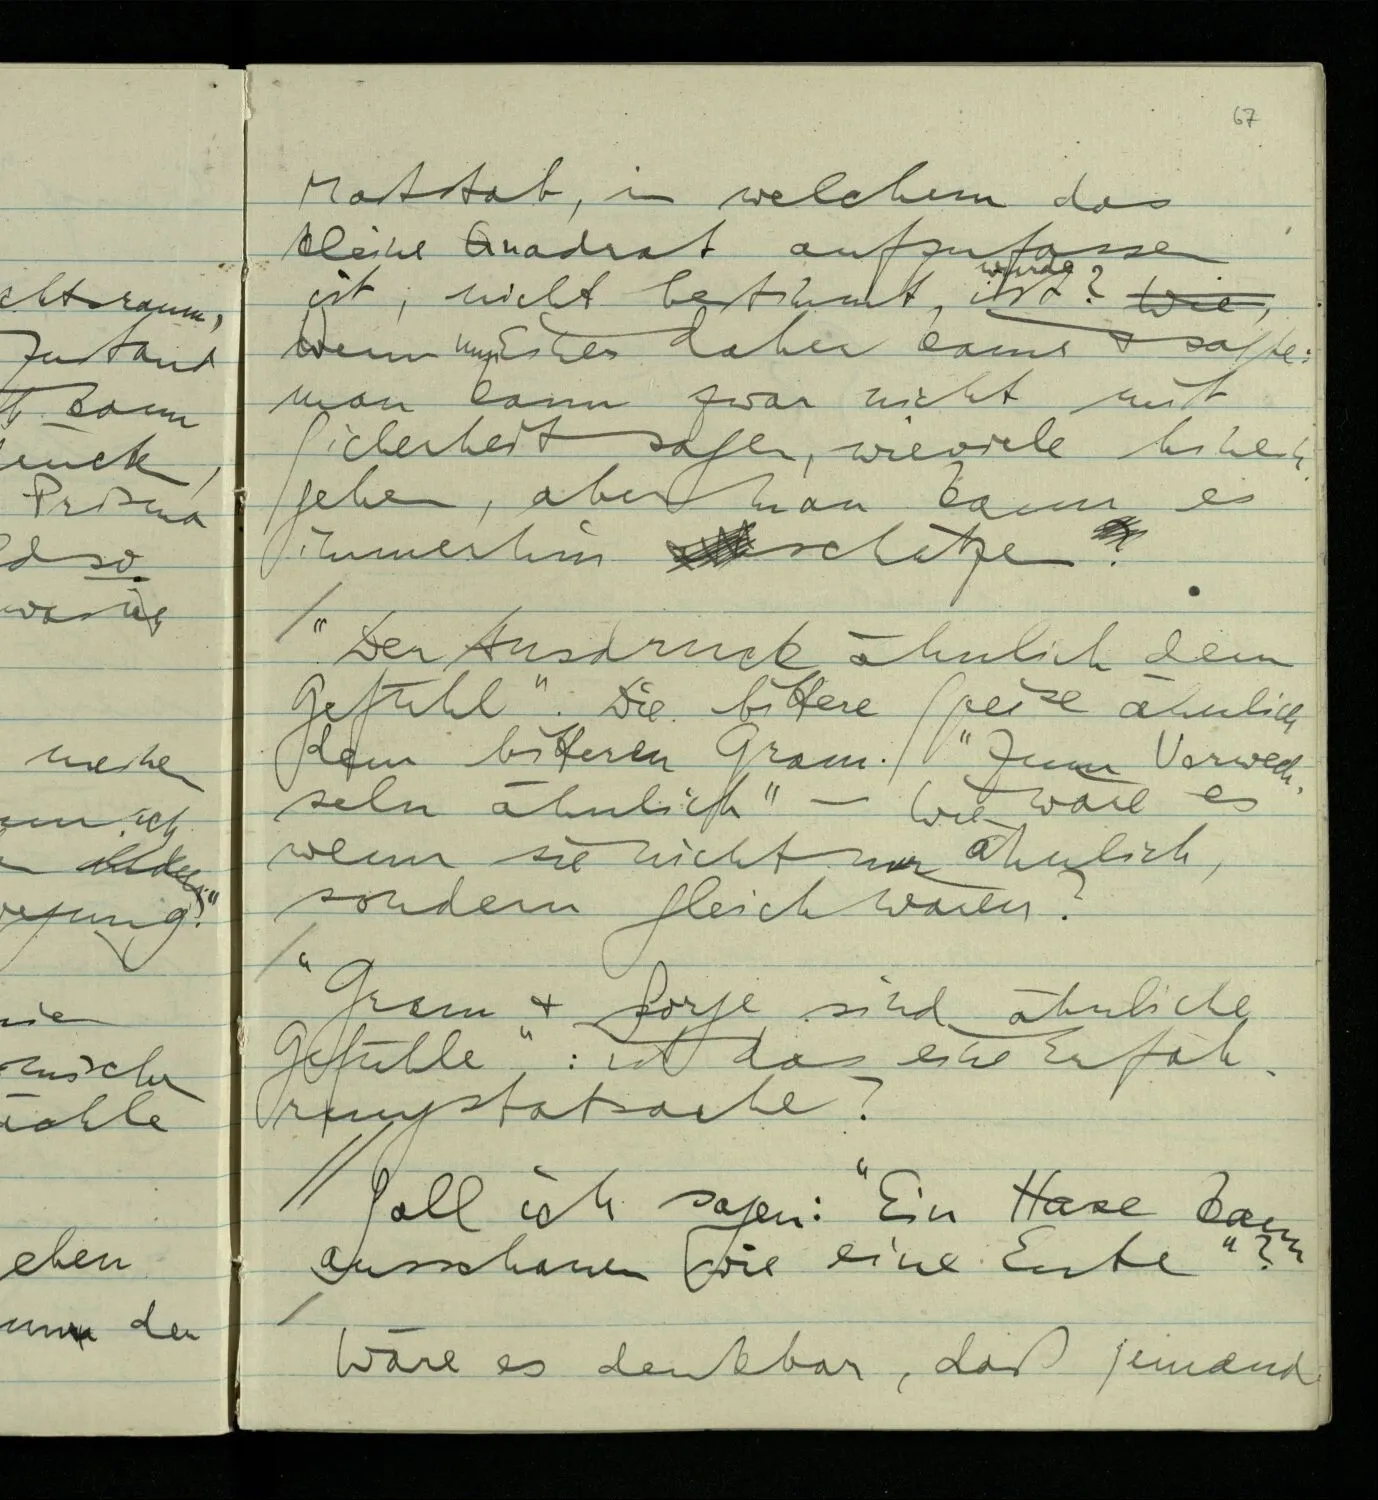 67
Maßstab, in welchem das
kleine Quadrat aufzufassen
ist, nicht bestimmt, ist? Wie,
wurde
wenn nun Einer daher käme & sagte:
man kann zwar nicht mit
Sicherheit sagen, wieviele hinein
gehen, aber man kann es
immerhin schätzen?
/ "Der Ausdruck ähnlich dem
Gefühl". Die bittere Speise ähnlich
dem bitteren Gram. / "Zum Verwech-
seln ähnlich" — wie wäre es
wenn sie nicht nur ähnlich,
sondern gleich wären?
/ "Gram & Sorge sind ähnliche
Gefühle": ist das eine Erfah-
rungstatsache?
// Soll ich sagen: "Ein Hase kann
ausschauen wie eine Ente"?
/ Wäre es denkbar, daß jemand
chtsraum,
Zustand
kann
Prisma
so
meinen
ich
ehen
den